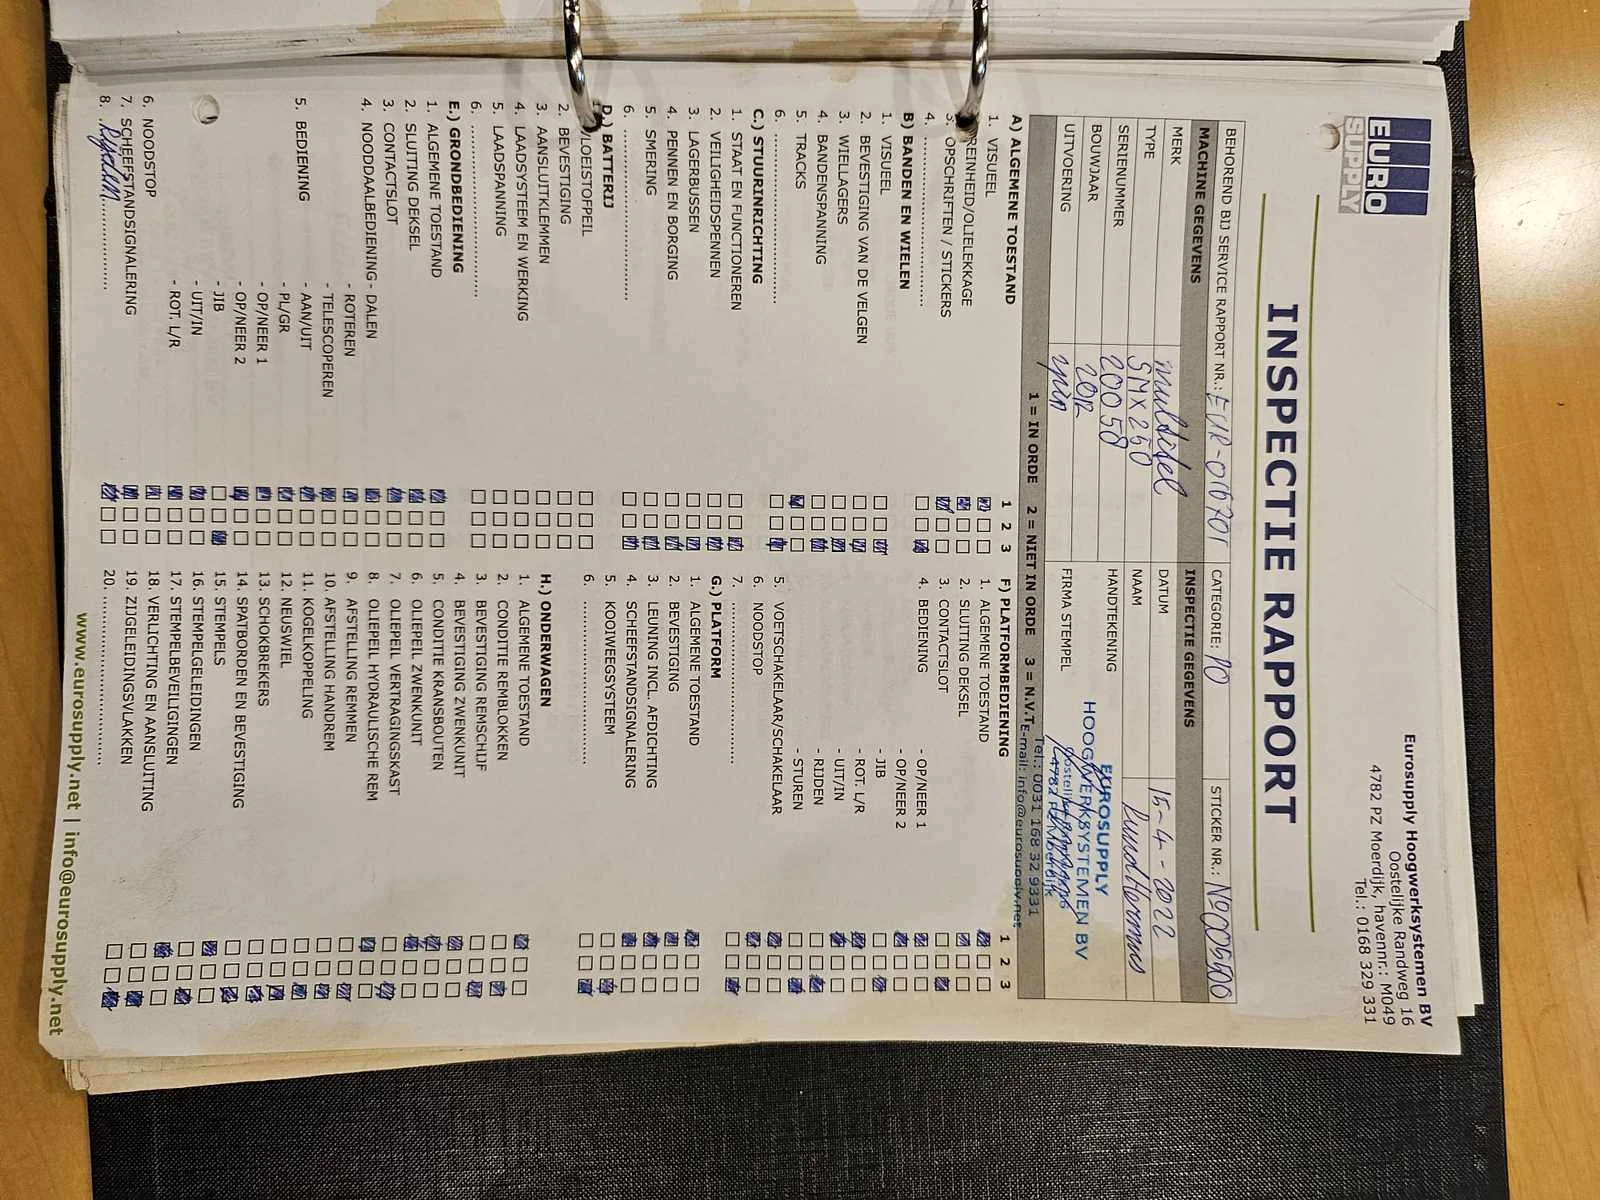 EURO
SUPPLY
Eurosupply Hoogwerksystemen BV
Oostelijke Randweg 16
4782 PZ Moerdijk, havennr.: M049
Tel.: 0168 329 331
INSPECTIE RAPPORT
BEHOREND BIJ SERVICE RAPPORT NR.: EUR-016701 CATEGORIE: PO STICKER NR.: No005600
MACHINE GEGEVENS
MERK multitel
TYPE SMX250
SERIENUMMER 20058
BOUWJAAR 2012
UITVOERING
INSPECTIE GEGEVENS
DATUM 15-4-2022
NAAM Ruud Hermans
HANDTEKENING
FIRMA STEMPEL
EUROSUPPLY
HOOGWERKSYSTEMEN BV
Tel.: 0031 168 32 9331
E-mail: info@eurosupply.net
1 = IN ORDE 2 = NIET IN ORDE 3 = N.V.T.
1 2 3
A) ALGEMENE TOESTAND
1. VISUEEL
REINHEID/OLIELEKKAGE
3. OPSCHRIFTEN / STICKERS
4.
B) BANDEN EN WIELEN
1. VISUEEL
2. BEVESTIGING VAN DE VELGEN
3. WIELLAGERS
4. BANDENSPANNING
5. TRACKS
6. ..................
C.) STUURINRICHTING
1. STAAT EN FUNCTIONEREN
2. VEILIGHEIDSPENNEN
3. LAGERBUSSEN
4. PENNEN EN BORGING
5. SMERING
6. ..................
D.) BATTERIJ
VLOEISTOFPEIL
2. BEVESTIGING
3. AANSLUITKLEMMEN
4. LAADSYSTEEM EN WERKING
5. LAADSPANNING
6. ..................
E.) GRONDBEDIENING
1. ALGEMENE TOESTAND
2. SLUITING DEKSEL
3. CONTACTSLOT
4. NOODDAALBEDIENING - DALEN
- ROTEREN
- TELESCOPEREN
5. BEDIENING - AAN/UIT
- PL/GR
- OP/NEER 1
- OP/NEER 2
- JIB
- UIT/IN
- ROT. L/R
6. NOODSTOP
7. SCHEEFSTANDSIGNALERING
8. Rijalarm
1 2 3
F) PLATFORMBEDIENING
1. ALGEMENE TOESTAND
2. SLUITING DEKSEL
3. CONTACTSLOT
4. BEDIENING - OP/NEER 1
- OP/NEER 2
- JIB
- ROT. L/R
- UIT/IN
- RIJDEN
- STUREN
5. VOETSCHAKELAAR/SCHAKELAAR
6. NOODSTOP
7. ..................
G.) PLATFORM
1. ALGEMENE TOESTAND
2. BEVESTIGING
3. LEUNING INCL. AFDICHTING
4. SCHEEFSTANDSIGNALERING
5. KOOIWEEGSYSTEEM
6. ..................
H.) ONDERWAGEN
1. ALGEMENE TOESTAND
2. CONDITIE REMBLOKKEN
3. BEVESTIGING REMSCHIJF
4. BEVESTIGING ZWENKUNIT
5. CONDITIE KRANSBOUTEN
6. OLIEPEIL ZWENKUNIT
7. OLIEPEIL VERTRAGINGSKAST
8. OLIEPEIL HYDRAULISCHE REM
9. AFSTELLING REMMEN
10. AFSTELLING HANDREM
11. KOGELKOPPELING
12. NEUSWIEL
13. SCHOKBREKERS
14. SPATBORDEN EN BEVESTIGING
15. STEMPELS
16. STEMPELGELEIDINGEN
17. STEMPELBEVEILIGINGEN
18. VERLICHTING EN AANSLUITING
19. ZIJGELEIDINGSVLAKKEN
20. ..................
www.eurosupply.net | info@eurosupply.net